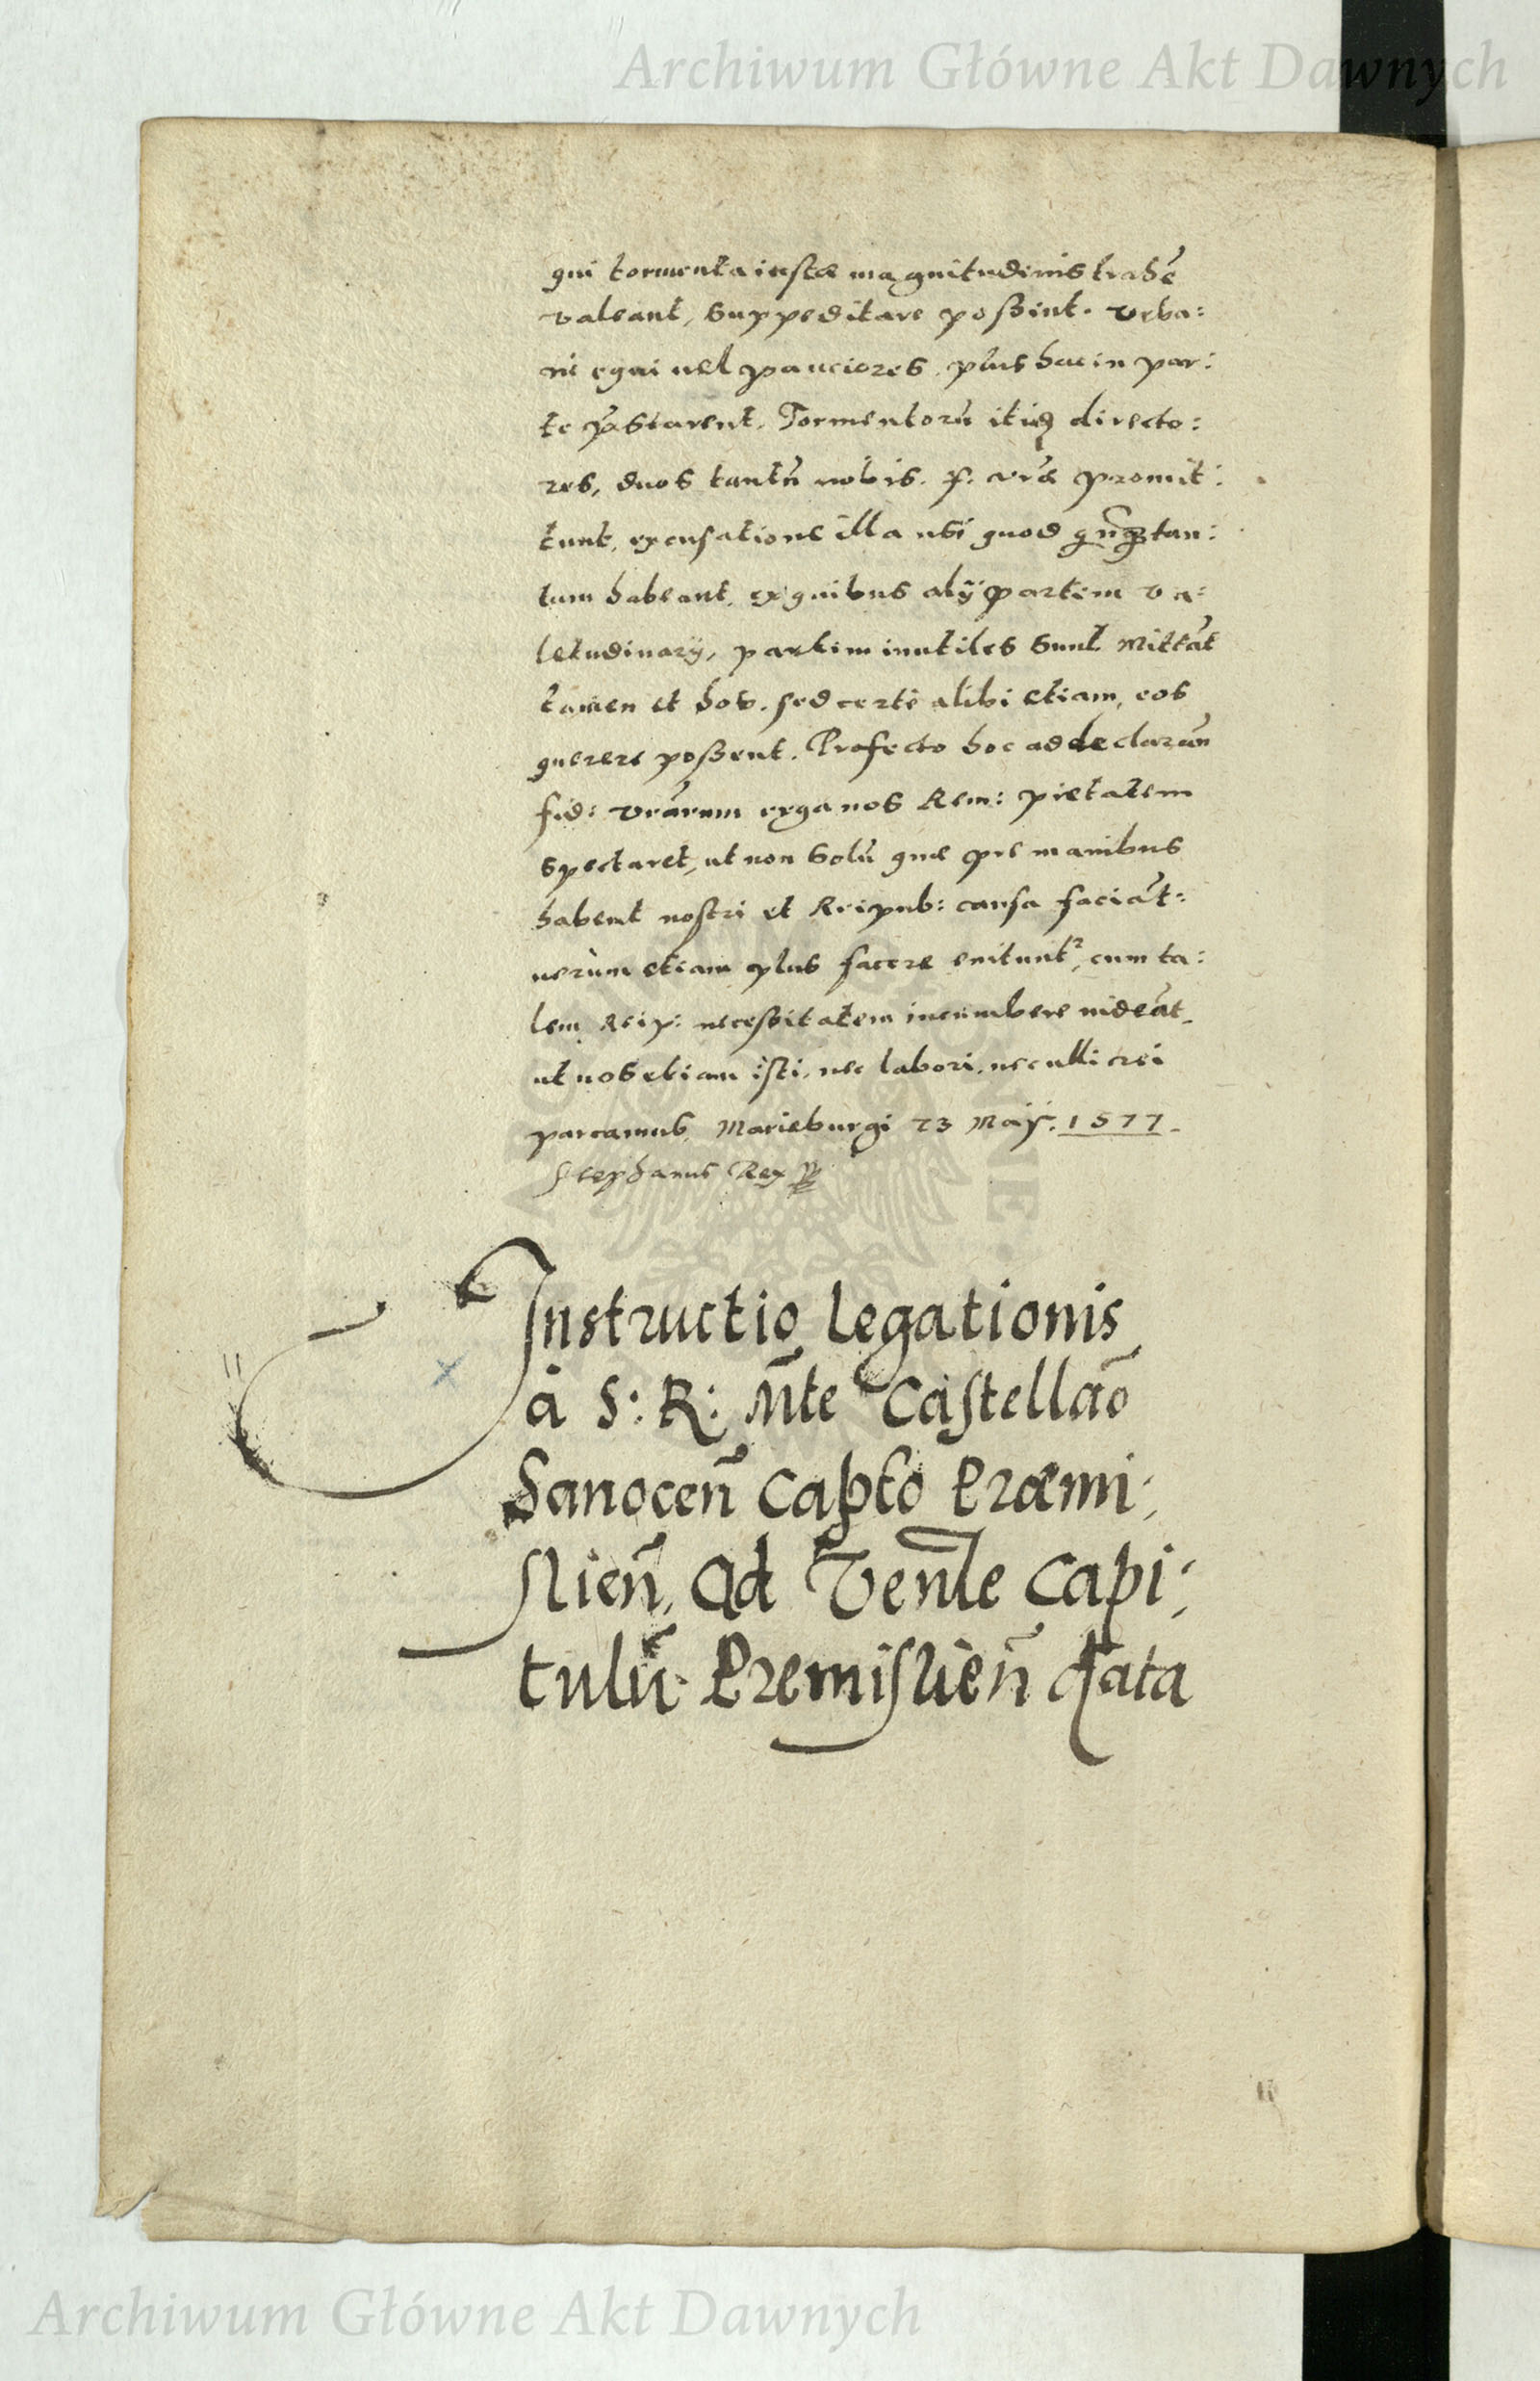 Archiwum Główne Akt Dawnych
qui tormenta iustæ magnitudinis trahē
valeant, suppeditare possint. Vrba:
ni equi uel pauciores, plus hac in par:
te p̃starent. Tormentorū itidẽ directo:
res, duos tantũ nobis. f. vr̃æ promit:
tunt, excusatione illa usi quod tan:
tum habeant, ex quibus alij partim va:
letudinarij, partim inutiles sunt Mittãt
tamen et hos. sed certe alibi etiam, eos
querere possent. Profecto hoc ad declarãn
fid: vrãrum erga nos Rem: pietatem
spectaret, ut non solũ quæ præ manibus
habent nostri et Reipub: causa faciãt:
uerùm etiam plus facere enitunt², cum ta:
lem Reip: necessitatem incumbere uideãt,
ut nos etiam isti, nec labori, nec ulli rei
parcamus, Marieburgi 23 Maij. 1577.
Stephanus Rex
Instructio legationis
à S: R: M̃te Castellaõ
Sanoceñ Capt̃o Præmi:
slieñ, ad Veñle Capi:
tulũ Premislieñ data
Archiwum Główne Akt Dawnych